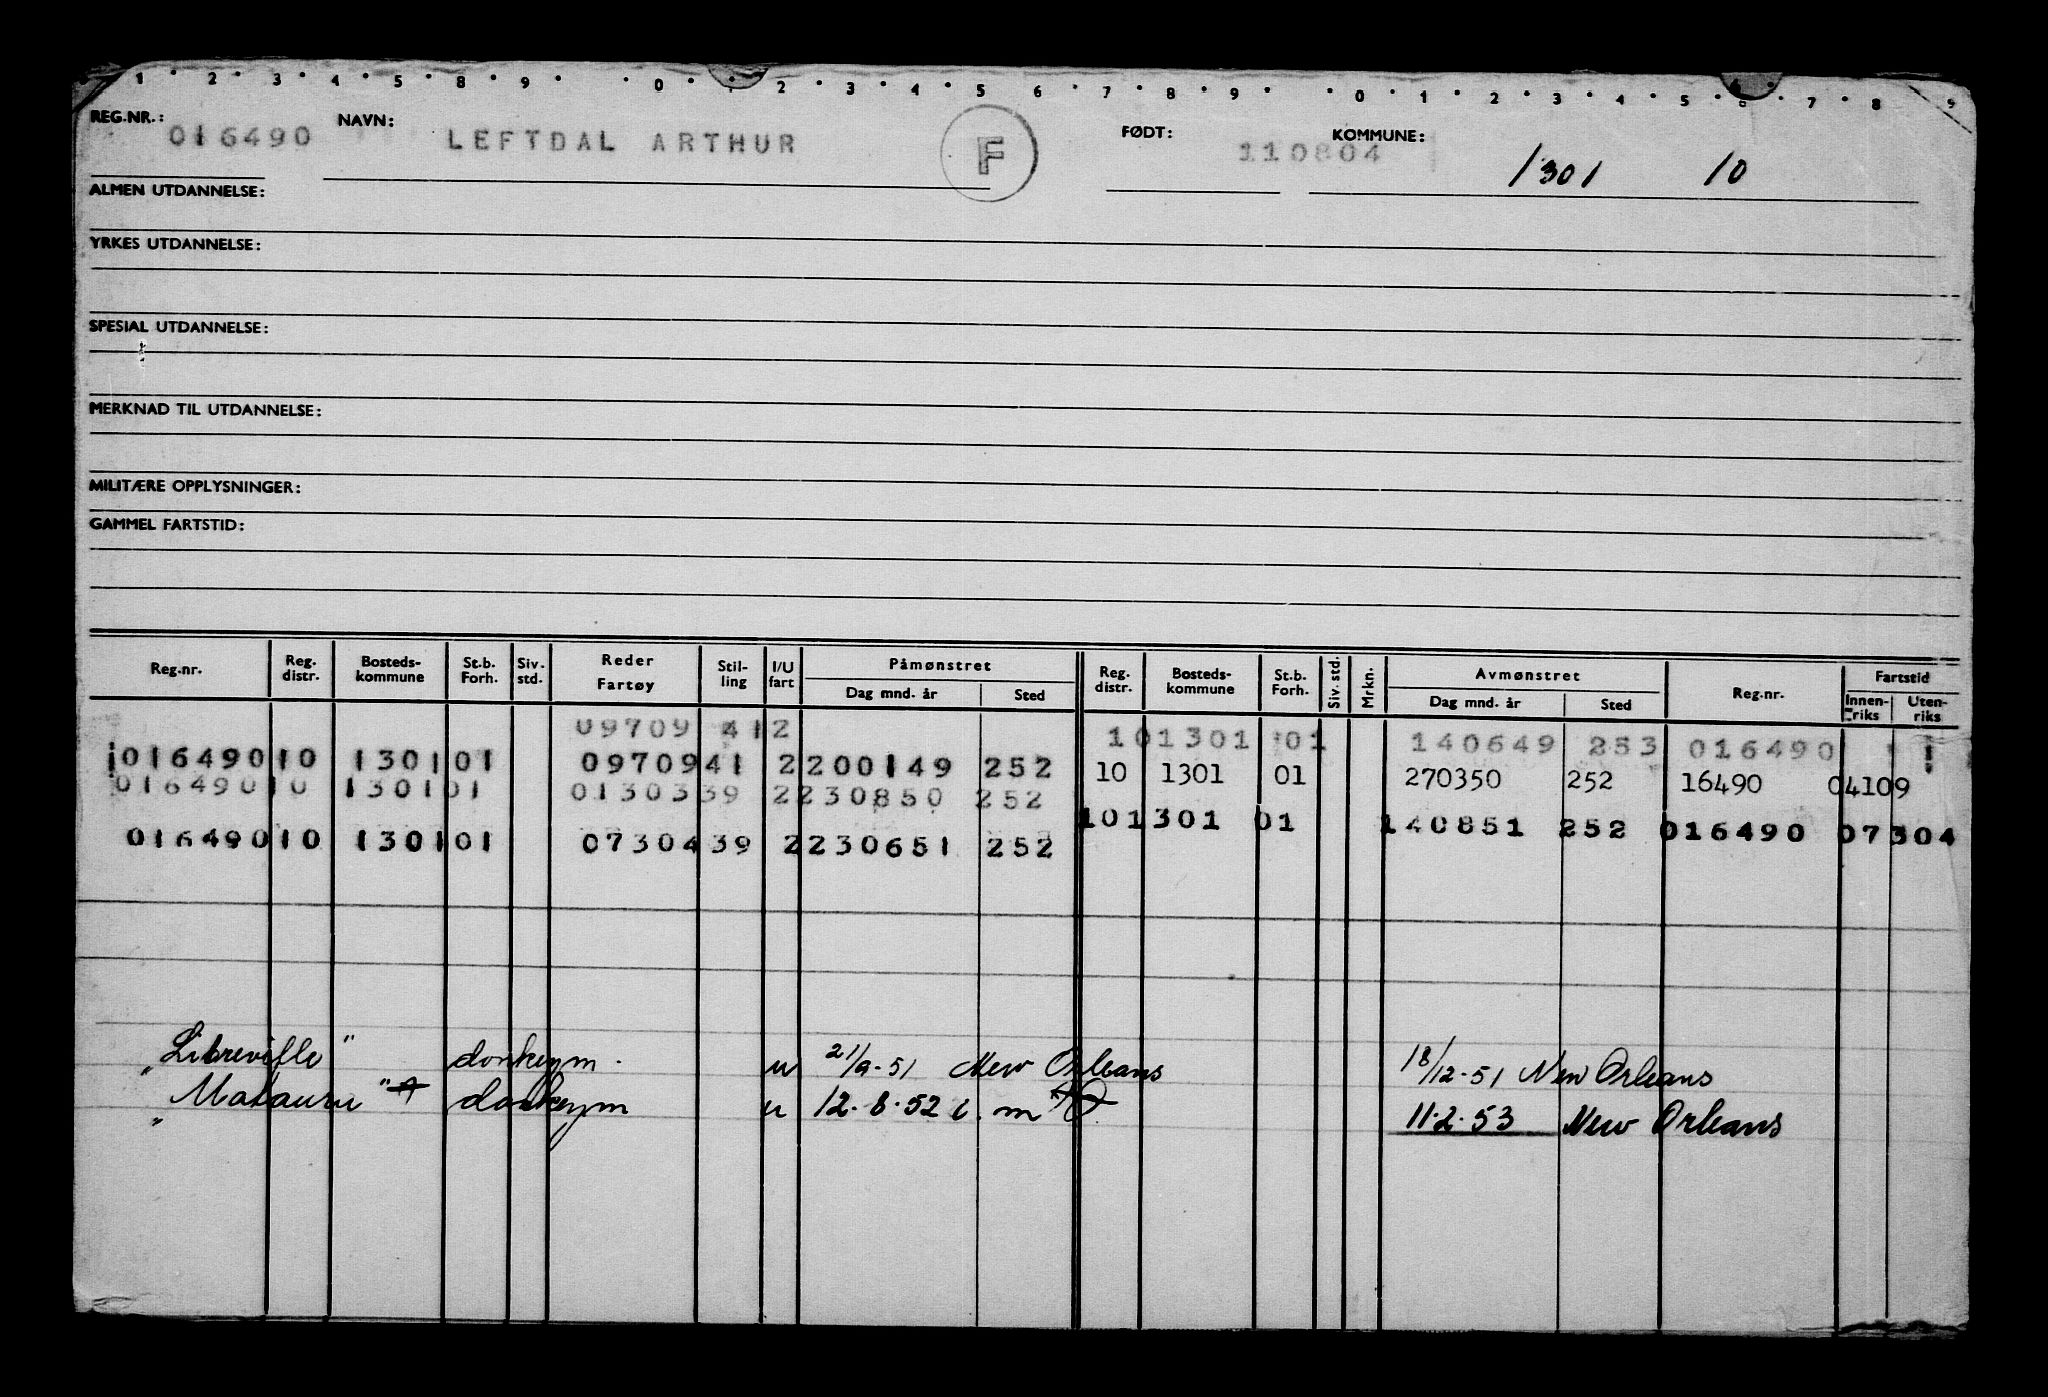 1 2 3 4 5 8 9 0 1 2 3 4 5 6 7 8 9 0 1 2 3 4 5 6 7 8 9
REG.NR.: 016490 NAVN: LEFTDAL ARTHUR F FØDT: 110804 KOMMUNE: 1301 10
ALMEN UTDANNELSE:
YRKES UTDANNELSE:
SPESIAL UTDANNELSE:
MERKNAD TIL UTDANNELSE:
MILITÆRE OPPLYSNINGER:
GAMMEL FARTSTID:
Reg.nr. Reg. distr. Bosteds-kommune St.b. Forh. Siv. std. Reder Fartøy Stil-ling I/U fart Påmønstret Dag mnd. år Sted Reg. distr. Bosteds-kommune St.b. Forh. Siv. std. Mrkn. Avmønstret Dag mnd. år Sted Reg.nr. Fartstid Innen-riks Uten-riks
09709 412 101301 01 140649 253 016490
01649010 130101 0970941 2200149 252 10 1301 01 270350 252 16490 04109
01649010 130101 0130339 2230850 252 101301 01 140851 252 016490 07304
01649010 130101 0730439 2230651 252
"Libreville" donkeym. u 21/9-51 New Orleans 18/12-51 New Orleans
" donkeym u 12.8.52 i. m 11.2.53 New Orleans